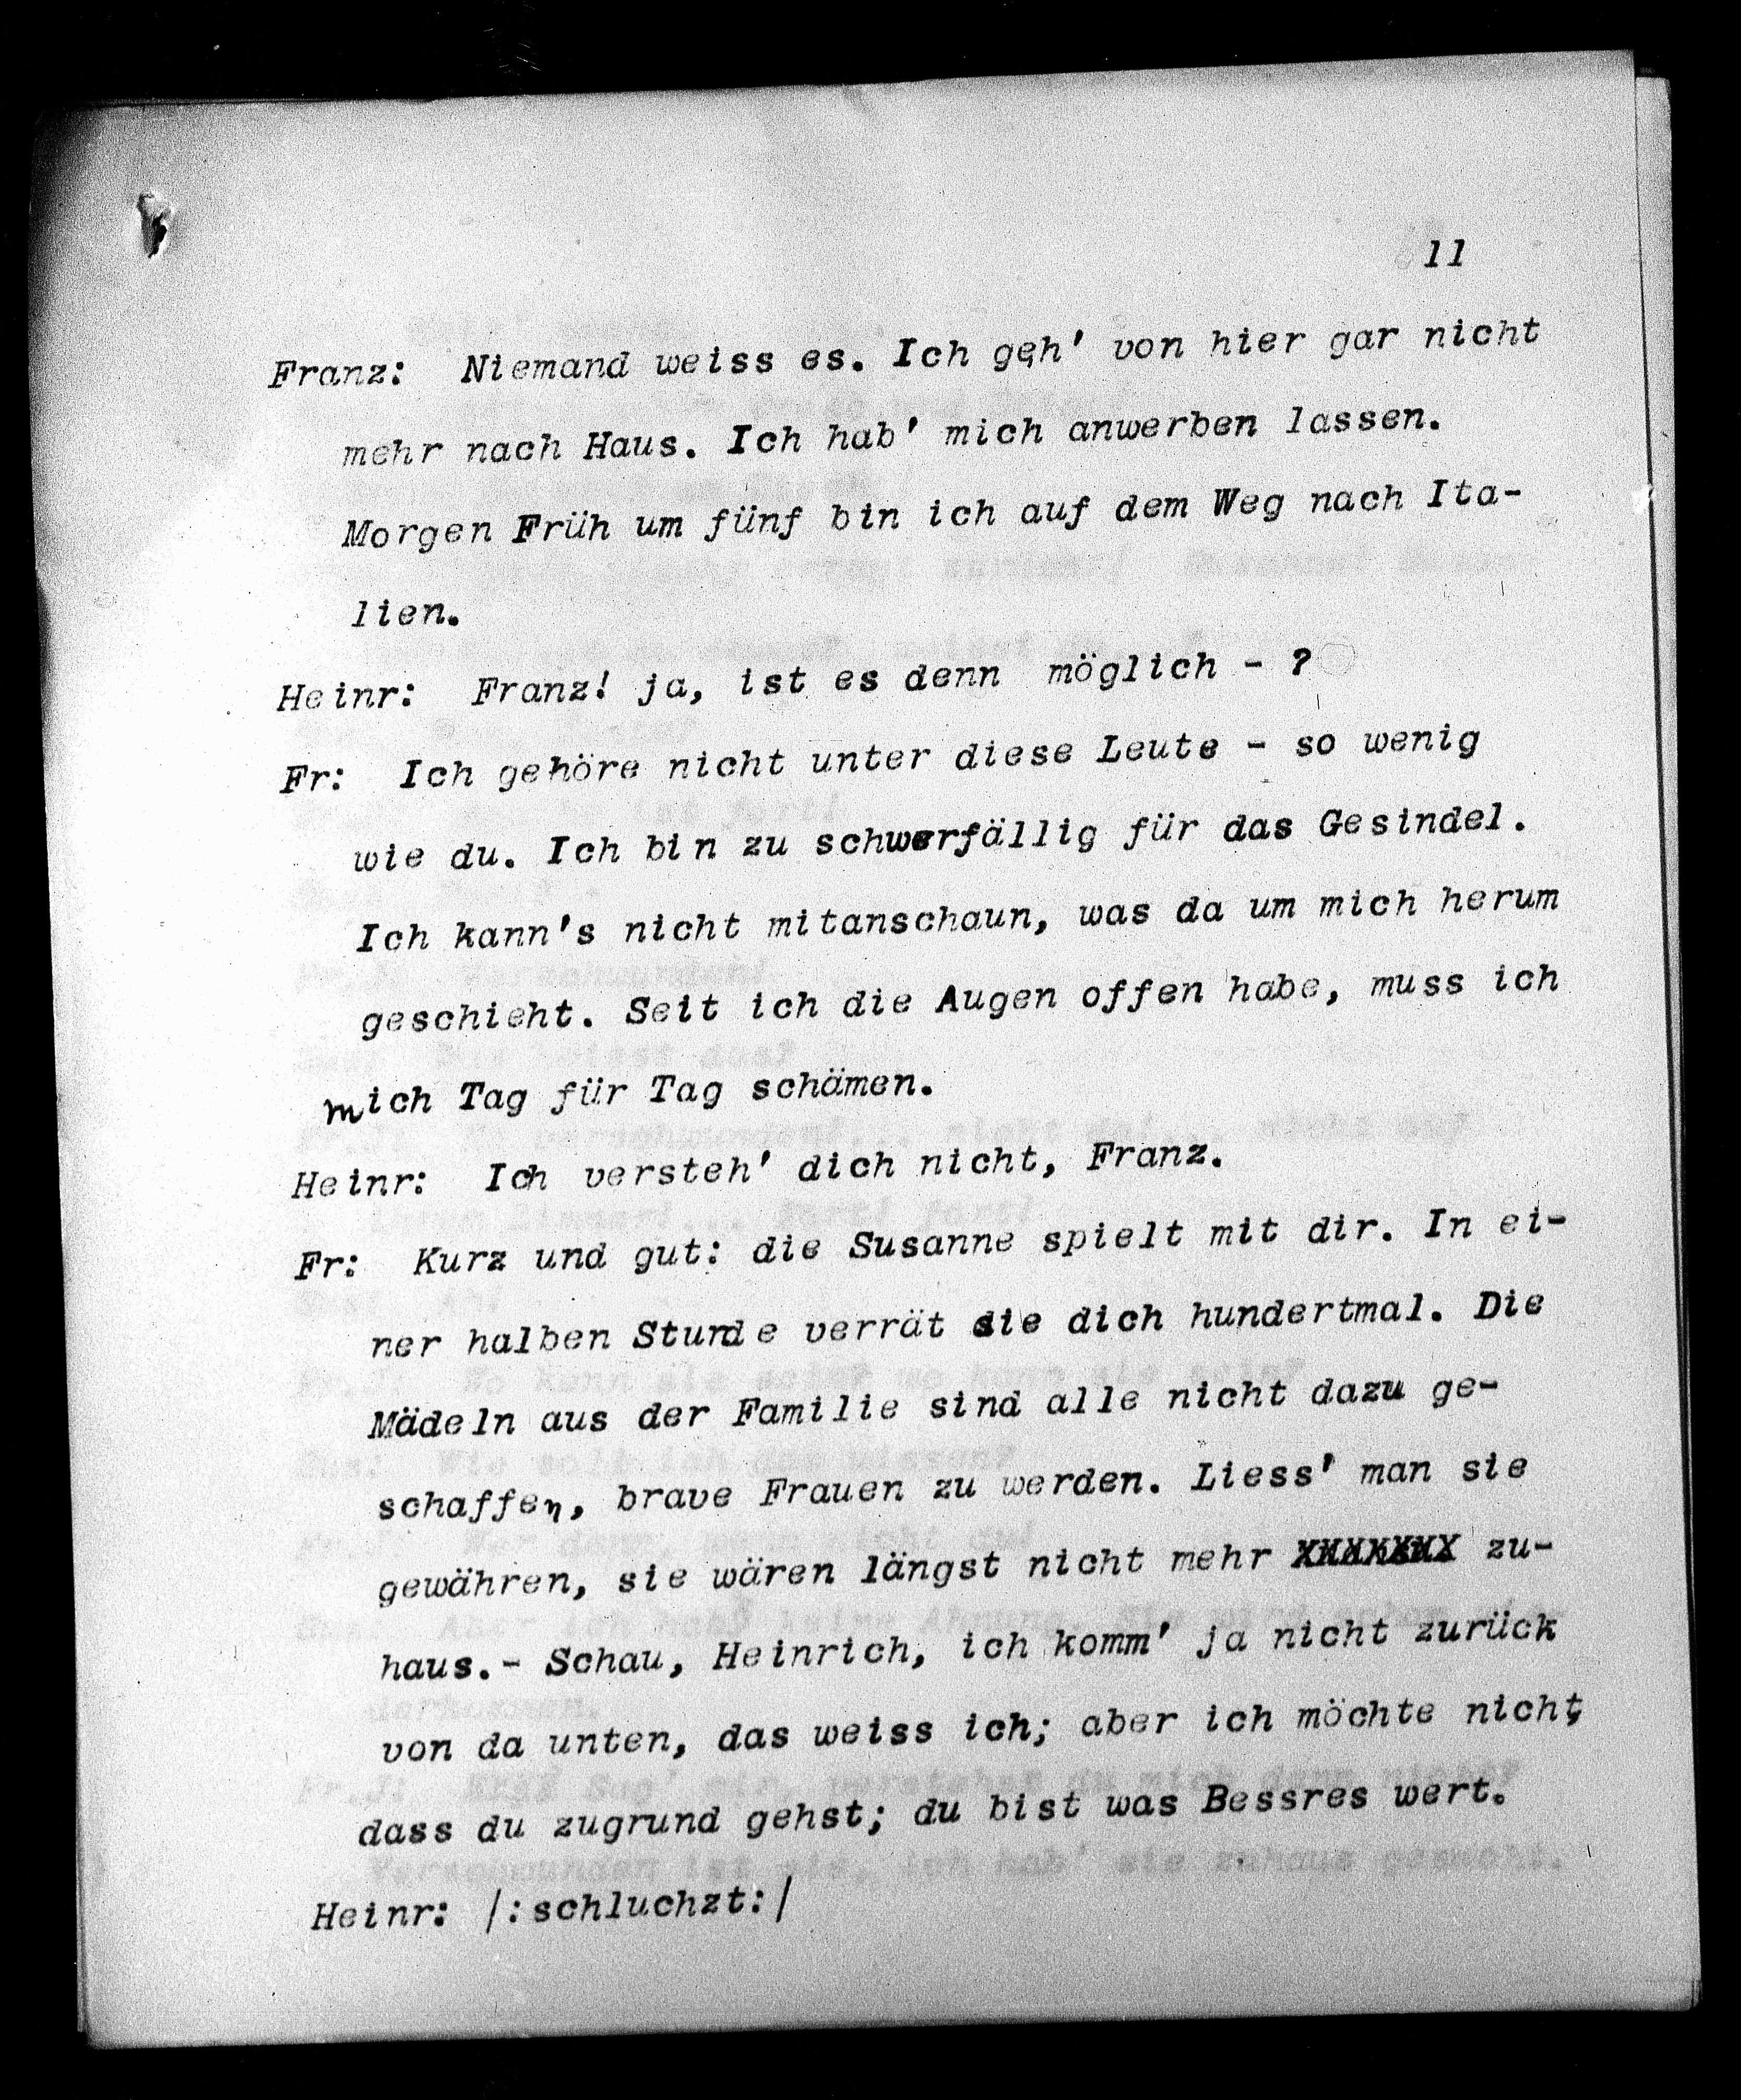 11
Franz: Niemand weiss es. Ich geh' von hier gar nicht
mehr nach Haus. Ich hab' mich anwerben lassen.
Morgen Früh um fünf bin ich auf dem Weg nach Ita-
lien.
Heinr: Franz! ja, ist es denn möglich - ?
Fr: Ich gehöre nicht unter diese Leute - so wenig
wie du. Ich bin zu schwerfällig für das Gesindel.
Ich kann's nicht mitanschaun, was da um mich herum
geschieht. Seit ich die Augen offen habe, muss ich
mich Tag für Tag schämen.
Heinr: Ich versteh' dich nicht, Franz.
Fr: Kurz und gut: die Susanne spielt mit dir. In ei-
ner halben Stunde verrät sie dich hundertmal. Die
Mädeln aus der Familie sind alle nicht dazu ge-
schaffen, brave Frauen zu werden. Liess' man sie
gewähren, sie wären längst nicht mehr zu-
haus.- Schau, Heinrich, ich komm' ja nicht zurück
von da unten, das weiss ich; aber ich möchte nicht,
dass du zugrund gehst; du bist was Bessres wert.
Heinr: /:schluchzt:/